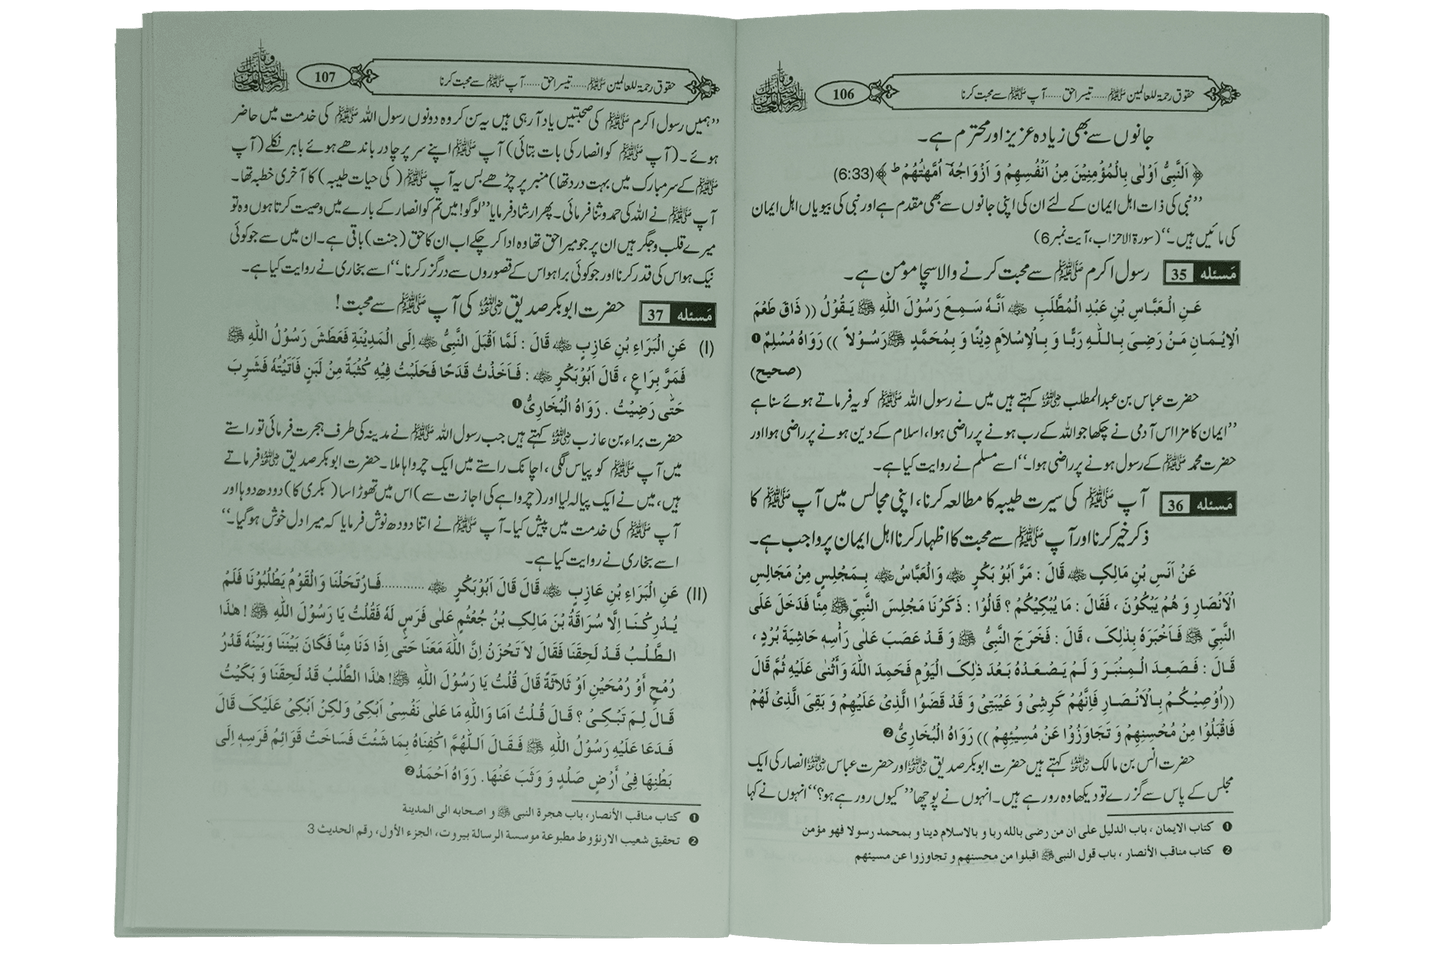 106
حقوق رحمۃ للعالمین ﷺ ...... تیسرا حق ...... آپ ﷺ سے محبت کرنا
جانوں سے بھی زیادہ عزیز اور محترم ہے۔
﴿ اَلنَّبِیُّ اَوْلٰی بِالْمُؤْمِنِیْنَ مِنْ اَنْفُسِهِمْ وَ اَزْوَاجُهٗ اُمَّهٰتُهُمْ ط ﴾(6:33)
’’نبی کی ذات اہل ایمان کے لئے ان کی اپنی جانوں سے بھی مقدم ہے اور نبی کی بیویاں اہل ایمان
کی مائیں ہیں۔‘‘ (سورۃ الاحزاب، آیت نمبر 6)
مَسئله 35 رسول اکرم ﷺ سے محبت کرنے والا سچا مومن ہے۔
عَنِ الْعَبَّاسِ بْنِ عَبْدِ الْمُطَّلِبِ ﷜ اَنَّهٗ سَمِعَ رَسُوْلَ اللّٰهِ ﷺ یَقُوْلُ (( ذَاقَ طَعْمَ
الْاِیْمَانِ مَنْ رَضِیَ بِاللّٰهِ رَبًّا وَ بِالْاِسْلَامِ دِیْنًا وَ بِمُحَمَّدٍ ﷺ رَسُوْلاً )) رَوَاهُ مُسْلِمٌ ❶
(صحیح)
حضرت عباس بن عبدالمطلب ؓ کہتے ہیں میں نے رسول اللہ ﷺ کو یہ فرماتے ہوئے سنا ہے
’’ایمان کا مزا اس آدمی نے چکھا جو اللہ کے رب ہونے پر راضی ہوا، اسلام کے دین ہونے پر راضی ہوا اور
حضرت محمد ﷺ کے رسول ہونے پر راضی ہوا۔‘‘ اسے مسلم نے روایت کیا ہے۔
مَسئله 36 آپ ﷺ کی سیرت طیبہ کا مطالعہ کرنا، اپنی مجالس میں آپ ﷺ کا
ذکر خیر کرنا اور آپ ﷺ سے محبت کا اظہار کرنا اہل ایمان پر واجب ہے۔
عَنْ اَنَسِ بْنِ مَالِکٍ ﷜ قَالَ : مَرَّ اَبُوْ بَکْرٍ ﷜ وَالْعَبَّاسُ ﷜ بِمَجْلِسٍ مِنْ مَجَالِسِ
الْاَنْصَارِ وَ هُمْ یَبْکُوْنَ ، فَقَالَ : مَا یُبْکِیْکُمْ ؟ قَالُوْا : ذَکَرْنَا مَجْلِسَ النَّبِیِّ ﷺ مِنَّا فَدَخَلَ عَلَی
النَّبِیِّ ﷺ فَاَخْبَرَهٗ بِذٰلِکَ ، قَالَ : فَخَرَجَ النَّبِیُّ ﷺ وَ قَدْ عَصَبَ عَلٰی رَأْسِهٖ حَاشِیَةَ بُرْدٍ ،
قَالَ : فَصَعِدَ الْمِنْبَرَ وَ لَمْ یَصْعَدْهُ بَعْدَ ذٰلِکَ الْیَوْمِ فَحَمِدَ اللّٰهَ وَ اَثْنٰی عَلَیْهِ ثُمَّ قَالَ
((اُوْصِیْکُمْ بِالْاَنْصَارِ فَاِنَّهُمْ کَرِشِیْ وَ عَیْبَتِیْ وَ قَدْ قَضَوُا الَّذِیْ عَلَیْهِمْ وَ بَقِیَ الَّذِیْ لَهُمْ
فَاقْبَلُوْا مِنْ مُحْسِنِهِمْ وَ تَجَاوَزُوْا عَنْ مُسِیْئِهِمْ )) رَوَاهُ الْبُخَارِیُّ ❷
حضرت انس بن مالک ؓ کہتے ہیں حضرت ابوبکر صدیق ؓ اور حضرت عباس ؓ انصار کی ایک
مجلس کے پاس سے گزرے تو دیکھا وہ رو رہے ہیں۔ انہوں نے پوچھا ’’کیوں رو رہے ہو؟‘‘ انہوں نے کہا
❶ کتاب الایمان ، باب الدلیل علی ان من رضی بالله ربا و بالاسلام دینا و بمحمد رسولا فهو مؤمن
❷ کتاب مناقب الأنصار ، باب قول النبی ﷺ اقبلوا من محسنهم و تجاوزوا عن مسیئهم
107
حقوق رحمۃ للعالمین ﷺ ...... تیسرا حق ...... آپ ﷺ سے محبت کرنا
’’ہمیں رسول اکرم ﷺ کی صحبتیں یاد آ رہی ہیں یہ سن کر وہ دونوں رسول اللہ ﷺ کی خدمت میں حاضر
ہوئے۔ (آپ ﷺ کو انصار کی بات بتائی) آپ ﷺ اپنے سر پر چادر باندھے ہوئے باہر نکلے (آپ
ﷺ کے سر مبارک میں بہت درد تھا) منبر پر چڑھے بس یہ آپ ﷺ (کی حیات طیبہ) کا آخری خطبہ تھا۔
آپ ﷺ نے اللہ کی حمد و ثنا فرمائی۔ پھر ارشاد فرمایا ’’لوگو! میں تم کو انصار کے بارے میں وصیت کرتا ہوں وہ تو
میرے قلب و جگر ہیں ان پر جو میرا حق تھا وہ ادا کر چکے اب ان کا حق (جنت) باقی ہے۔ ان میں سے جو کوئی
نیک ہو اس کی قدر کرنا اور جو کوئی برا ہو اس کے قصوروں سے درگزر کرنا۔‘‘ اسے بخاری نے روایت کیا ہے۔
مَسئله 37 حضرت ابوبکر صدیق ؓ کی آپ ﷺ سے محبت!
(I) عَنِ الْبَرَاءِ بْنِ عَازِبٍ ﷜ قَالَ : لَمَّا اَقْبَلَ النَّبِیُّ ﷺ اِلَی الْمَدِیْنَةِ فَعَطَشَ رَسُوْلُ اللّٰهِ ﷺ
فَمَرَّ بِرَاعٍ ، قَالَ اَبُوْبَکْرٍ ﷜ : فَاَخَذْتُ قَدَحًا فَحَلَبْتُ فِیْهِ کُثْبَةً مِنْ لَبَنٍ فَاَتَیْتُهٗ فَشَرِبَ
حَتّٰی رَضِیْتُ . رَوَاهُ الْبُخَارِیُّ ❶
حضرت براء بن عازب ؓ کہتے ہیں جب رسول اللہ ﷺ نے مدینہ کی طرف ہجرت فرمائی تو راستے
میں آپ ﷺ کو پیاس لگی، اچانک راستے میں ایک چرواہا ملا۔ حضرت ابوبکر صدیق ؓ فرماتے
ہیں، میں نے ایک پیالہ لیا اور (چرواہے کی اجازت سے) اس میں تھوڑا سا (بکری کا) دودھ دوہا اور
آپ ﷺ کی خدمت میں پیش کیا۔ آپ ﷺ نے اتنا دودھ نوش فرمایا کہ میرا دل خوش ہو گیا۔‘‘
اسے بخاری نے روایت کیا ہے۔
(II) عَنِ الْبَرَاءِ بْنِ عَازِبٍ ﷜ قَالَ قَالَ اَبُوْبَکْرٍ ﷜ ............ فَارْتَحَلْنَا وَالْقَوْمُ یَطْلُبُوْنَا فَلَمْ
یُدْرِکْنَا اِلَّا سُرَاقَةُ بْنُ مَالِکِ بْنُ جُعْثُمِ عَلٰی فَرَسٍ لَهٗ فَقُلْتُ یَا رَسُوْلَ اللّٰهِ ﷺ ! هٰذَا
الطَّلْبُ قَدْ لَحِقَنَا فَقَالَ لاَ تَحْزَنْ اِنَّ اللّٰهَ مَعَنَا حَتّٰی اِذَا دَنَا مِنَّا فَکَانَ بَیْنَنَا وَ بَیْنَهٗ قَدْرُ
رُمْحٍ اَوْ رُمْحَیْنِ اَوْ ثَلاَثَةً قَالَ قُلْتُ یَا رَسُوْلَ اللّٰهِ ﷺ ! هٰذَا الطَّلْبُ قَدْ لَحِقَنَا وَ بَکَیْتُ
قَالَ لِمَ تَبْکِیْ ؟ قَالَ قُلْتُ اَمَا وَاللّٰهِ مَا عَلٰی نَفْسِیْ اَبْکِیْ وَلٰکِنْ اَبْکِیْ عَلَیْکَ قَالَ
فَدَعَا عَلَیْهِ رَسُوْلُ اللّٰهِ ﷺ فَقَالَ اَللّٰهُمَّ اکْفِنَاهُ بِمَا شِئْتَ فَسَاخَتْ قَوَائِمُ فَرَسِهٖ اِلٰی
بَطْنِهَا فِیْ اَرْضٍ صَلْدٍ وَ وَثَبَ عَنْهَا. رَوَاهُ اَحْمَدُ ❷
❶ کتاب مناقب الأنصار، باب هجرة النبی ﷺ و اصحابه الی المدینة
❷ تحقیق شعیب الارنؤوط مطبوعة موسسة الرسالة بیروت، الجزء الأول، رقم الحدیث 3